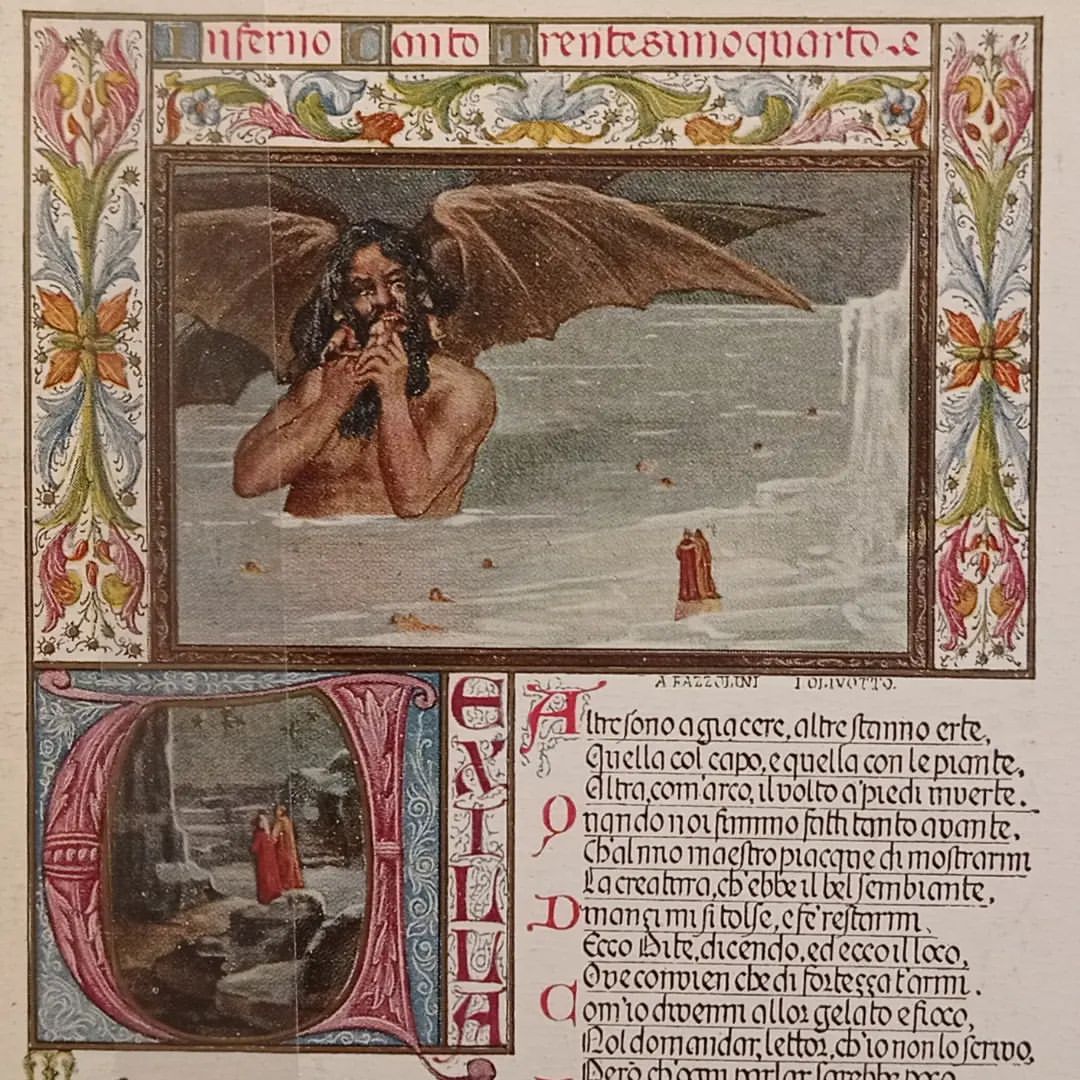 Inferno Canto Trentesimoquarto
A RAZZOLINI I OLIVOTTO.
VEXILLA
Altre sono a giacere, altre stanno erte,
Quella col capo, e quella con le piante,
Altra, com'arco, il volto a' piedi inverte.
Quando noi fummo fatti tanto avante,
Ch'al mio maestro piacque di mostrarmi
La creatura, ch'ebbe il bel sembiante,
Dinanzi mi si tolse, e fe' restarmi.
Ecco Dite, dicendo, ed ecco il loco,
Ove convien che di fortezza t'armi.
Com'io divenni allor gelato e fioco,
Nol domandar, lettor, ch'io non lo scrivo,
Però ch'ogni parlar sarebbe poco